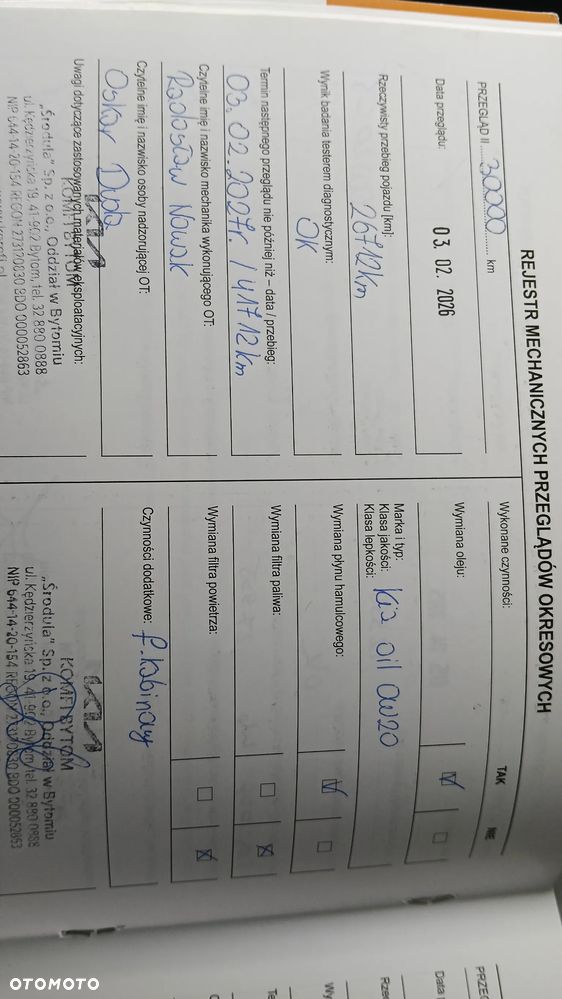 REJESTR MECHANICZNYCH PRZEGLĄDÓW OKRESOWYCH
PRZEGLĄD II 30000 km
Data przeglądu:
03. 02. 2026
Rzeczywisty przebieg pojazdu [km]:
26712km
Wynik badania testerem diagnostycznym:
OK
Termin następnego przeglądu nie później niż – data / przebieg:
03.02.2027r. / 41712km
Czytelne imię i nazwisko mechanika wykonującego OT:
Radosław Nowak
Czytelne imię i nazwisko osoby nadzorującej OT:
Oskar
Uwagi dotyczące zastosowanych materiałów eksploatacyjnych:
KIA
KOMFI BYTOM
„Środula" Sp. z o.o., Oddział w Bytomiu
ul. Kędzierzyńska 19, 41-902 Bytom, tel. 32 880 0888
NIP 644-14-20-154 REGON 273120830 BDO 000052863
Wykonane czynności:
TAK NIE
Wymiana oleju:
Marka i typ:
Klasa jakości:
Klasa lepkości:
Kia oil 0W20
Wymiana płynu hamulcowego:
Wymiana filtra paliwa:
Wymiana filtra powietrza:
Czynności dodatkowe: f. kabinowy
KIA
KOMFI BYTOM
„Środula" Sp. z o.o., Oddział w Bytomiu
ul. Kędzierzyńska 19, 41-902 Bytom, tel. 32 880 0888
NIP 644-14-20-154 REGON 273120830 BDO 000052863
PRZE
Data
Rze
Wy
Te
OTOMOTO